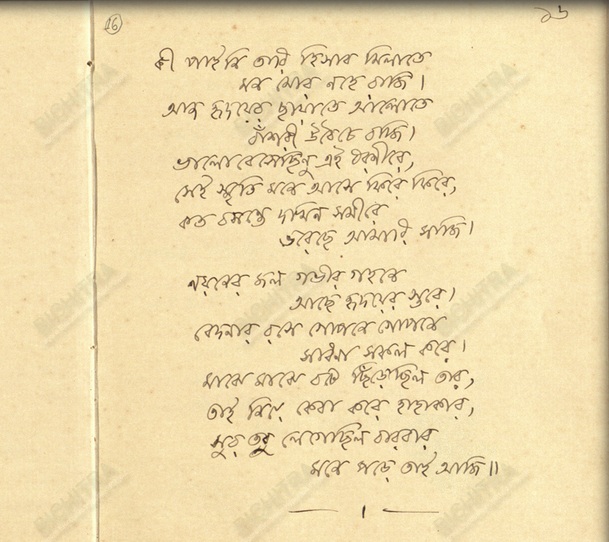 16
১৬
কী পাইনি তারি হিসাব মিলাতে
মন মোর নহে রাজি।
আজ হৃদয়ের ছায়াতে আলোতে
বাঁশরী উঠেছে বাজি।
ভালোবেসেছিনু এই ধরণীরে,
সেই স্মৃতি মনে আসে ফিরে ফিরে,
কত বসন্তে দখিন সমীরে
ভরেছে আমারি সাজি।
নয়নের জল গভীর গহনে
আছে হৃদয়ের স্তরে।
বেদনার রসে গোপনে গোপনে
সাধনা সফল করে।
মাঝে মাঝে বটে ছিঁড়েছিল তার,
তাই নিয়ে কেবা করে হাহাকার,
সুর তবু লেগেছিল বারবার
মনে পড়ে তাই আজি॥
BICHITRA